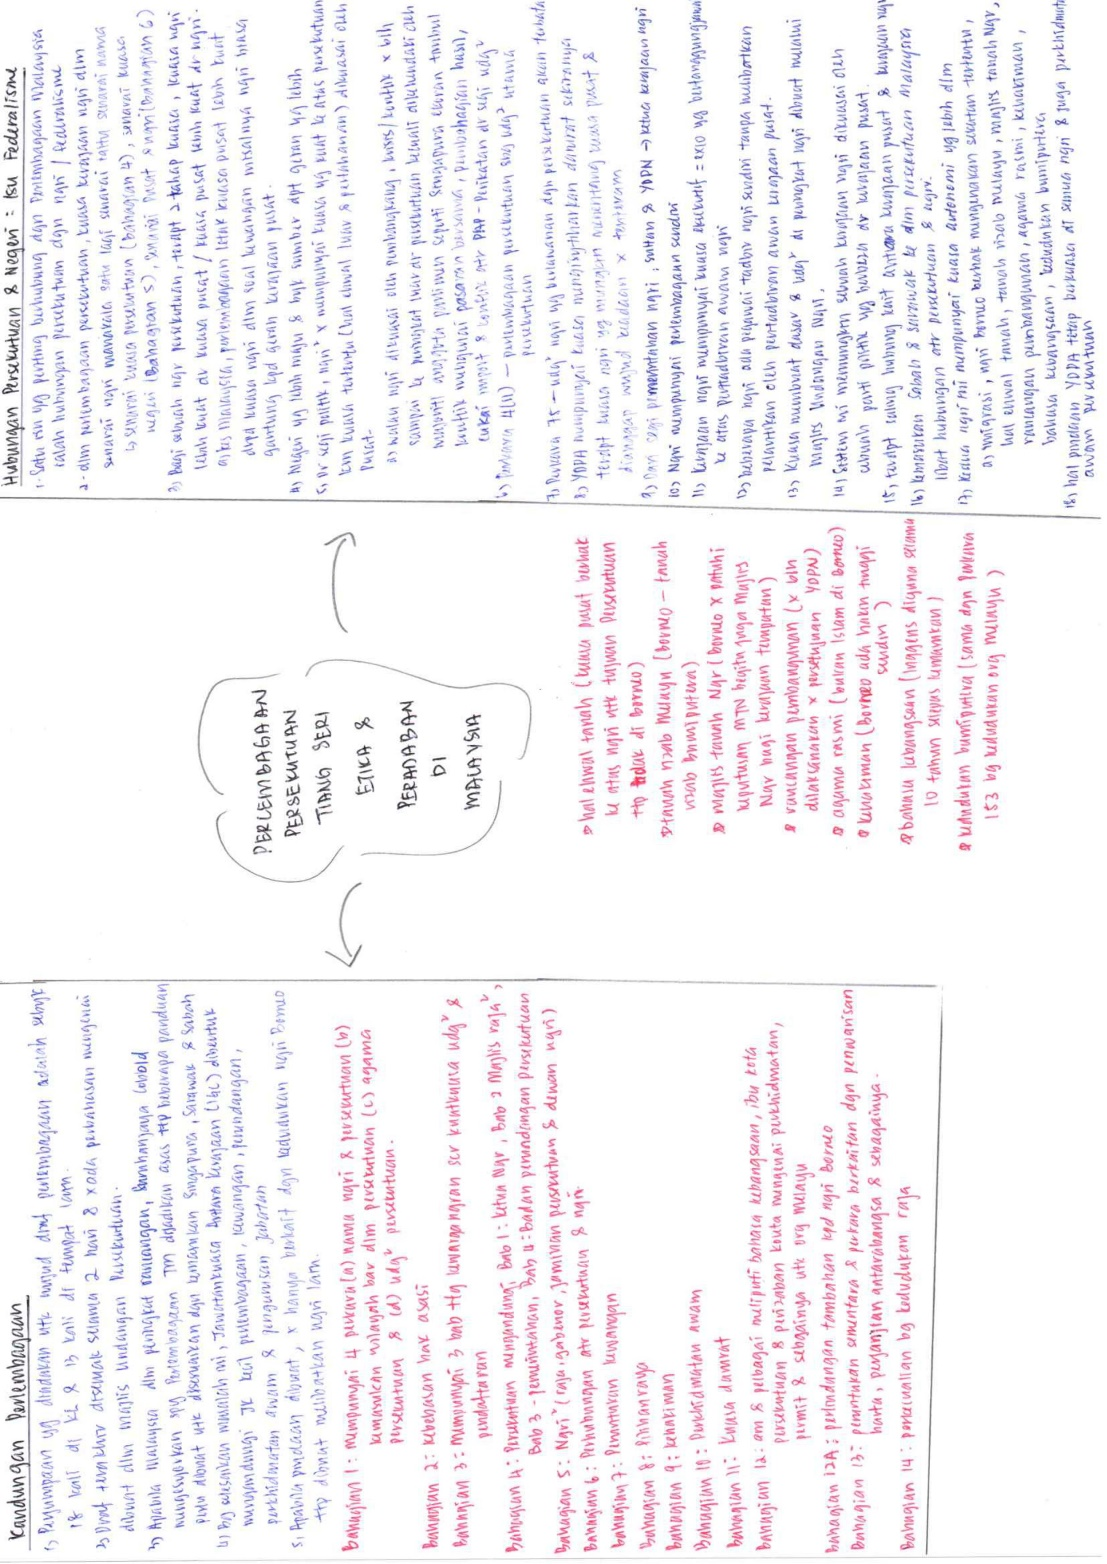 Kandungan Perlembagaan
1) Penjumpaan yg diadakan utk wujud draf perlembagaan adalah sebyk
18 kali di KL & 13 kali di tempat lain.
2) Draf terakhir disemak selama 2 hari & xada perbahasan mengenai
dibuat dlm majlis undangan Persekutuan.
3) Apabila malaysia dlm peringkat rancangan, suruhanjaya cobbold
mengesyorkan spy Perlembagaan TM dijadikan asas ttp beberapa panduan
perlu dibuat utk disesuaikan dgn kemasukan Singapura, Sarawak & Sabah
4) Bg selesaikan masalah ni, Jawatankuasa Antara Kerajaan (IGC) dibentuk
mengandungi JK kecil perlembagaan, kewangan, perundangan,
perkhidmatan awam & pengurusan jabatan
5) Apabila pindaan dibuat, x hanya berkait dgn kedudukan ngri Borneo
ttp dibuat melibatkan ngri lain.
Bahagian 1: mempunyai 4 perkara (a) nama ngri & persekutuan (b)
kemasukan wilayah bar dlm persekutuan (c) agama
persekutuan & (d) udg² persekutuan.
Bahagian 2: kebebasan hak asasi
Bahagian 3: mempunyai 3 bab ttg kewarganegaran scr kuatkuasa udg² &
pendaftaran
Bahagian 4: Persekutuan mengandungi Bab 1: Ketua Ngr, Bab 2 Majlis raja²,
Bab 3 - pemerintahan, Bab 4: Badan perundangan persekutuan
Bahagian 5: Ngri² (raja, gabenor, jaminan persekutuan & dewan ngri)
Bahagian 6: Perhubungan atr persekutuan & ngri.
bahagian 7: Peruntukan kewangan
Bahagian 8: Pilihanraya
Bahagian 9: kehakiman
Bahagian 10: Perkhidmatan awam
Bahagian 11: kuasa darurat
Bahagian 12: am & pelbagai meliputi bahasa kebangsaan, ibu kota
persekutuan & perizaban kouta mengenai perkhidmatan,
permit & sebagainya utk org melayu
Bahagian 12A: perlindungan tambahan kpd ngri Borneo
Bahagian 13: peruntukan sementara & perkara berkaitan dgn pewarisan
harta, perjanjian antarabangsa & sebagainya.
Bahagian 14: pengecualian bg kedudukan raja
PERLEMBAGAAN
PERSEKUTUAN
TIANG SERI
ETIKA &
PERADABAN
DI
MALAYSIA
hal ehwal tanah (kuasa pusat berhak
ke atas ngri utk tujuan Persekutuan
ttp tidak di borneo)
tanah rizab Melayu (borneo - tanah
rizab Bumiputera)
majlis tanah Ngr (Borneo x patuhi
keputusan MTN begitu juga Majlis
Ngr bagi kerajaan tempatan)
rancangan pembangunan (x blh
dilaksanakan x persetujuan YDPN)
agama rasmi (bukan Islam di Borneo)
kehakiman (Borneo ada hakim tinggi
sendiri)
bahasa kebangsaan (Inggeris diguna selama
10 tahun selepas kemasukan)
kedudukan bumiputera (sama dgn Perkara
153 bg kedudukan org melayu)
Hubungan Persekutuan & Negeri : Isu Federalisme
1. Satu ciri yg penting berhubung dgn Perlembagaan Malaysia
ialah hubungan persekutuan dgn ngri / federalisme
2. dlm perlembagaan persekutuan, kuasa kerajaan ngri dlm
senarai ngri manakala satu lagi senarai iaitu senarai nama
senarai kuasa persekutuan (Bahagian 4), senarai kuasa
negeri (Bahagian 5), senarai Pusat & ngri (bahagian 6)
3) Bagi sebuah ngr persekutuan, terdpt 2 tahap kuasa, kuasa ngri
lebih kuat dr kuasa pusat / kuasa pusat lebih kuat dr ngri.
di kes Malaysia, perlembagaan letak kuasa pusat lebih kuat
drpd kuasa ngri dlm soal kewangan misalnya ngri biasa
gantung kpd geran kerajaan pusat.
4) Negeri yg lebih maju & byk sumber dpt geran yg lebih
5) Dr segi politik, ngri² x mempunyai kuasa yg kuat ke atas persekutuan
krn kuasa tertentu (hal ehwal luar & pertahanan) dikuasai oleh
Pusat.
a) walau ngri dikuasai oleh pembangkang, krisis / konflik x blh
sampai ke peringkat luar dr persekutuan jika x dikehendaki oleh
majoriti anggota parlimen seperti Singapura kerana timbul
konflik mengenai pasaran bersama, pembahagian hasil,
cukai import & konflik atr PAP - Perikatan dr segi udg²
6) Perkara 4(1) - perlembagaan persekutuan sbg udg² utama
persekutuan
7) Perkara 75 - udg² ngri yg berlawanan dgn persekutuan akan terbatal
8) YDPA mempunyai kuasa mengisytiharkan darurat sekiranya
terdpt kuasa ngri yg mungkin menentang kuasa pusat &
dianggap wujud keadaan x tenteram
9) Dari segi pemerintahan ngri; sultan & YDPN → ketua kerajaan ngri
10) Ngri mempunyai perlembagaan sendiri
11) Kerajaan ngri mempunyai kuasa eksekutif = exco yg bertanggungjawab
ke atas pentadbiran awam ngri
12) beberapa ngri ada pegawai tadbir ngri sendiri tanpa melibatkan
pelantikan oleh pentadbiran awam kerajaan pusat.
13) Kuasa membuat dasar & udg² di peringkat ngri dibuat melalui
Majlis Undangan Ngri.
14) Sistem ni memungkin sebuah kerajaan ngri dikuasai oleh
sebuah parti politik yg berbeza dr kerajaan pusat.
15) terdpt saling hubung kait antara kerajaan pusat & kerajaan ngri
16) Kemasukan Sabah & Sarawak ke dlm persekutuan Malaysia
libat hubungan atr persekutuan & ngri.
17) Kedua ngri ni mempunyai kuasa autonomi yg lebih dlm
a) imigrasi, ngri borneo berhak mengenakan sekatan tertentu,
hal ehwal tanah, tanah rizab melayu, majlis tanah Ngr,
rancangan pembangunan, agama rasmi, kehakiman,
bahasa kebangsaan, kedudukan bumiputera
18) hal pindaan YDPA tetap berkuasa di semua ngri & juga perkhidmatan
awam persekutuan